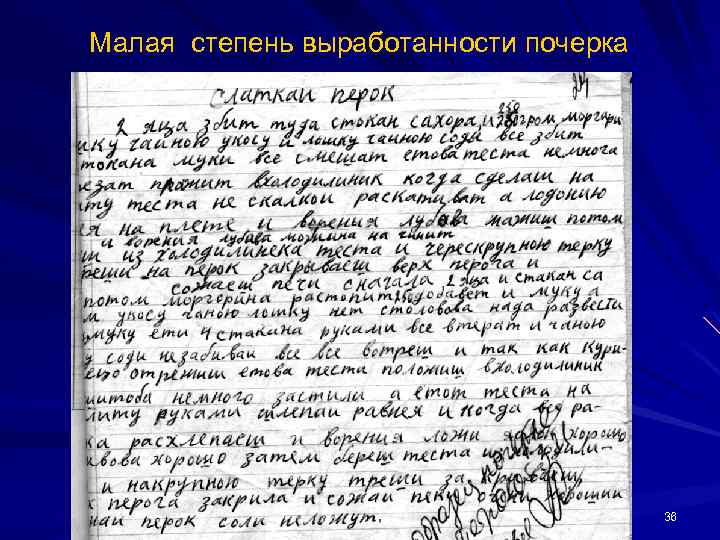 Малая степень выработанности почерка
24
слаткаи перок
2 яца збит туда стокан сахора, 250 гром моргари
ику чайною укосу и лошку чайною соды все збит
токана муки все смешат етова теста немнога
езат пожит вхолодилиник когда сделаш на
иту теста не скалкои раскативат а лодонию
ея на плете и ворения лубова мажиш потом
и ворения лубава можина на чинит
ш из холодилинска теста и черескрупною терку
реши на перок закрываеш верх перога и
сожаеш печи сначала 2 яца и стакан са
потом моргорина растопит подобавет и муку а
м укосу чаною лошку нет столовова нада развести
муку ети 4 стакана руками все втерат и чаною
у соди незабиваи все все вотреш и так как кури
его отрежиш етова теста положиш вхолодилиник
шитоба немного застили а етот теста на
литу руками шлепаи равнея и когда все ра-
ка расхлепаеш и ворения ложи хорошо
квова хорошо затем береш теста
и накрупною терку треши закрываеш
к перога закрила и сожаи пеку хорошии
наи перок соли неложут.
36